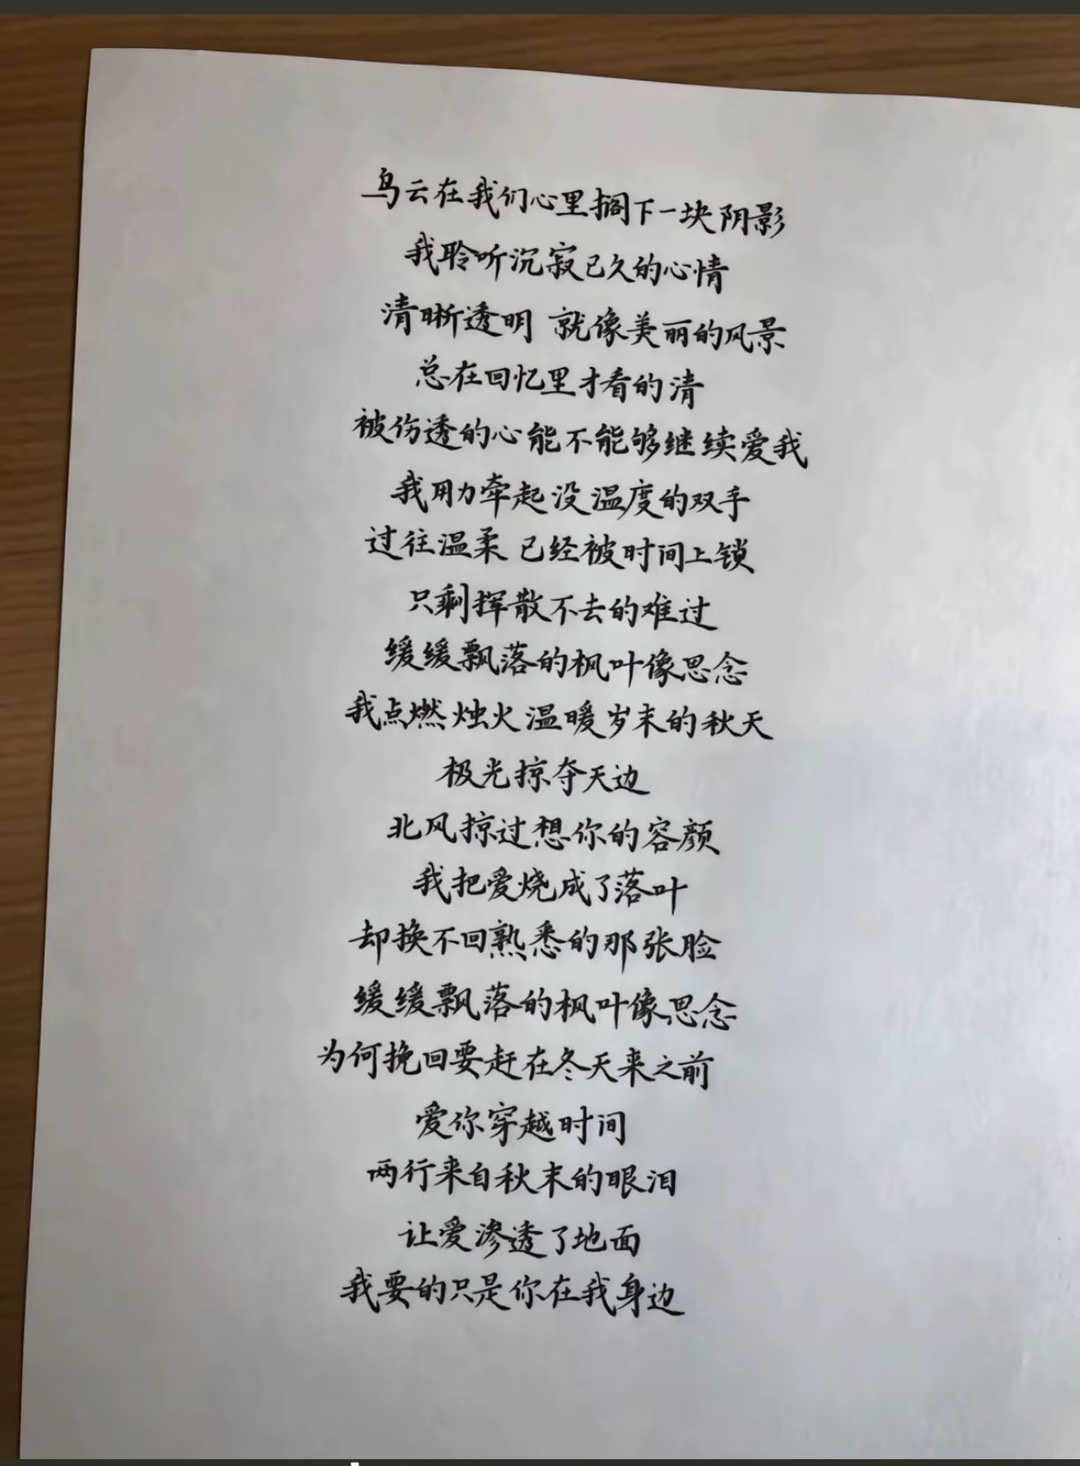 乌云在我们心里搁下一块阴影
我聆听沉寂已久的心情
清晰透明 就像美丽的风景
总在回忆里才看的清
被伤透的心能不能够继续爱我
我用力牵起没温度的双手
过往温柔 已经被时间上锁
只剩挥散不去的难过
缓缓飘落的枫叶像思念
我点燃烛火温暖岁末的秋天
极光掠夺天边
北风掠过想你的容颜
我把爱烧成了落叶
却换不回熟悉的那张脸
缓缓飘落的枫叶像思念
为何挽回要赶在冬天来之前
爱你穿越时间
两行来自秋末的眼泪
让爱渗透了地面
我要的只是你在我身边